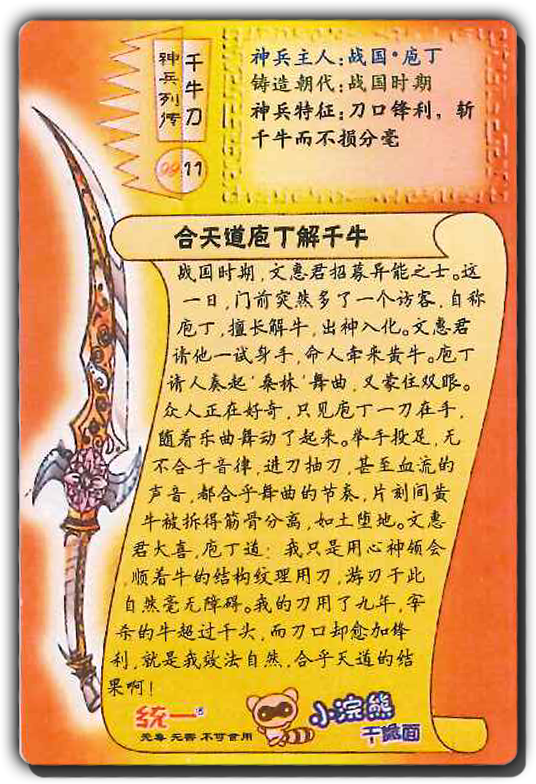 神兵列传
千牛刀
11
神兵主人：战国·庖丁
铸造朝代：战国时期
神兵特征：刀口锋利，斩
千牛而不损分毫
合天道庖丁解千牛
战国时期，文惠君招募异能之士。这
一日，门前突然多了一个访客，自称
庖丁，擅长解牛，出神入化。文惠君
请他一试身手，命人牵来黄牛。庖丁
请人奏起‘桑林’舞曲，又蒙住双眼。
众人正在好奇，只见庖丁一刀在手，
随着乐曲舞动了起来。举手投足，无
不合于音律，进刀抽刀，甚至血流的
声音，都合乎舞曲的节奏，片刻间黄
牛被拆得筋骨分离，如土堕地。文惠
君大喜，庖丁道：我只是用心神领会
，顺着牛的结构纹理用刀，游刃于此
自然毫无障碍。我的刀用了九年，宰
杀的牛超过千头，而刀口却愈加锋
利，就是我效法自然，合乎天道的结
果啊！
统一®
无毒 无害 不可食用
小浣熊
干脆面